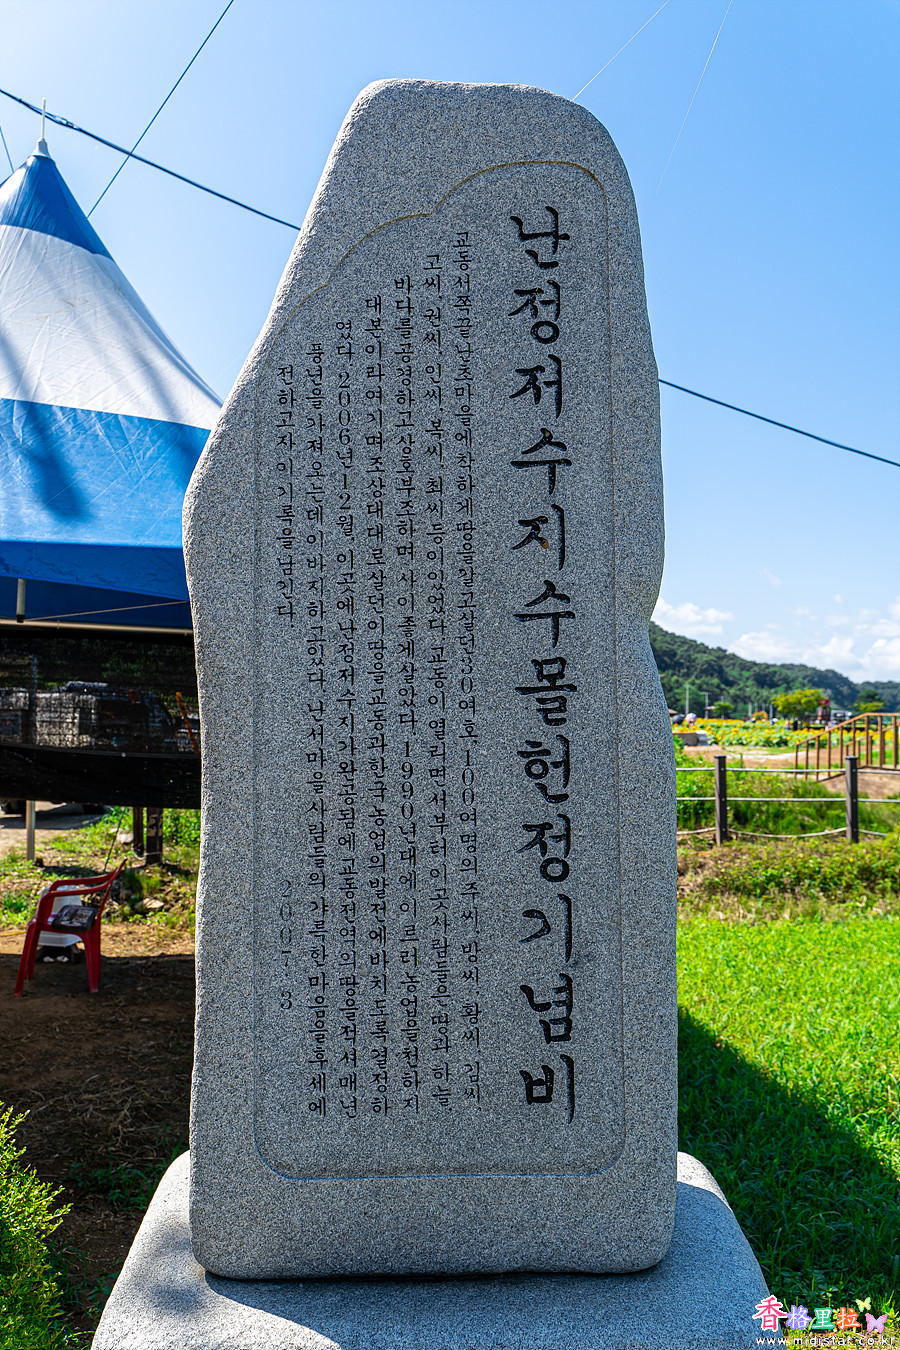 난정저수지수몰헌정기념비
교동서쪽골난초마을에착하게땅을일고살던30여호, 100여명의주씨, 방씨, 황씨, 김씨,
고씨, 권씨, 인씨, 복씨, 최씨등이있었다. 교동이열리면서부터이곳사람들은땅과하늘
바다를공경하고상호부조하며사이좋게살았다. 1990년대에이르러농업을천하지
대본이라여기며조상대대로살던이땅을교동과한국농업의발전에바치도록결정하
였다. 2006년12월, 이곳에난정저수지가완공됨에교동전역의땅을적셔매년
풍년을가져오는데이바지하고있다. 난서마을사람들의갸륵한마음을후세에
전하고자이기록을남긴다.
2007. 3
香格里拉
www.midistat.co.kr